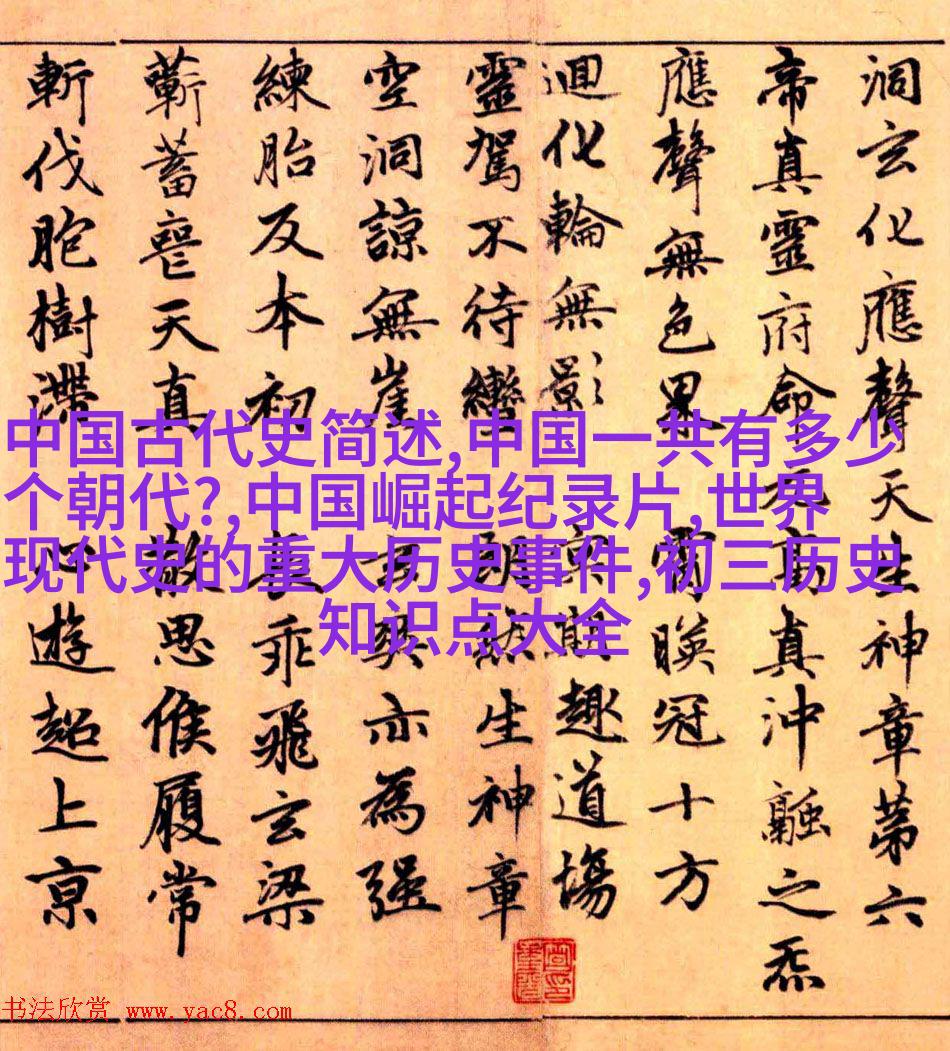 洞玄化應聲天生神章第六
帝真靈府命元高真沖融之炁
應聲無色界霄暎冠十方
迴化輪無影冥期趣道場
靈駕不待轡朗然生神章
空洞諒無崖玄爽亦為强
練胎反本初長乖飛玄梁
蘄蓄喪天真散思候履常
斬伐胞樹滯心遊超上京
中国古代史简述,中国一共有多少
个朝代?,中国崛起纪录片,世界
现代史的重大历史事件,初三历史
知识点大全
书法欣赏 www.yac8.com